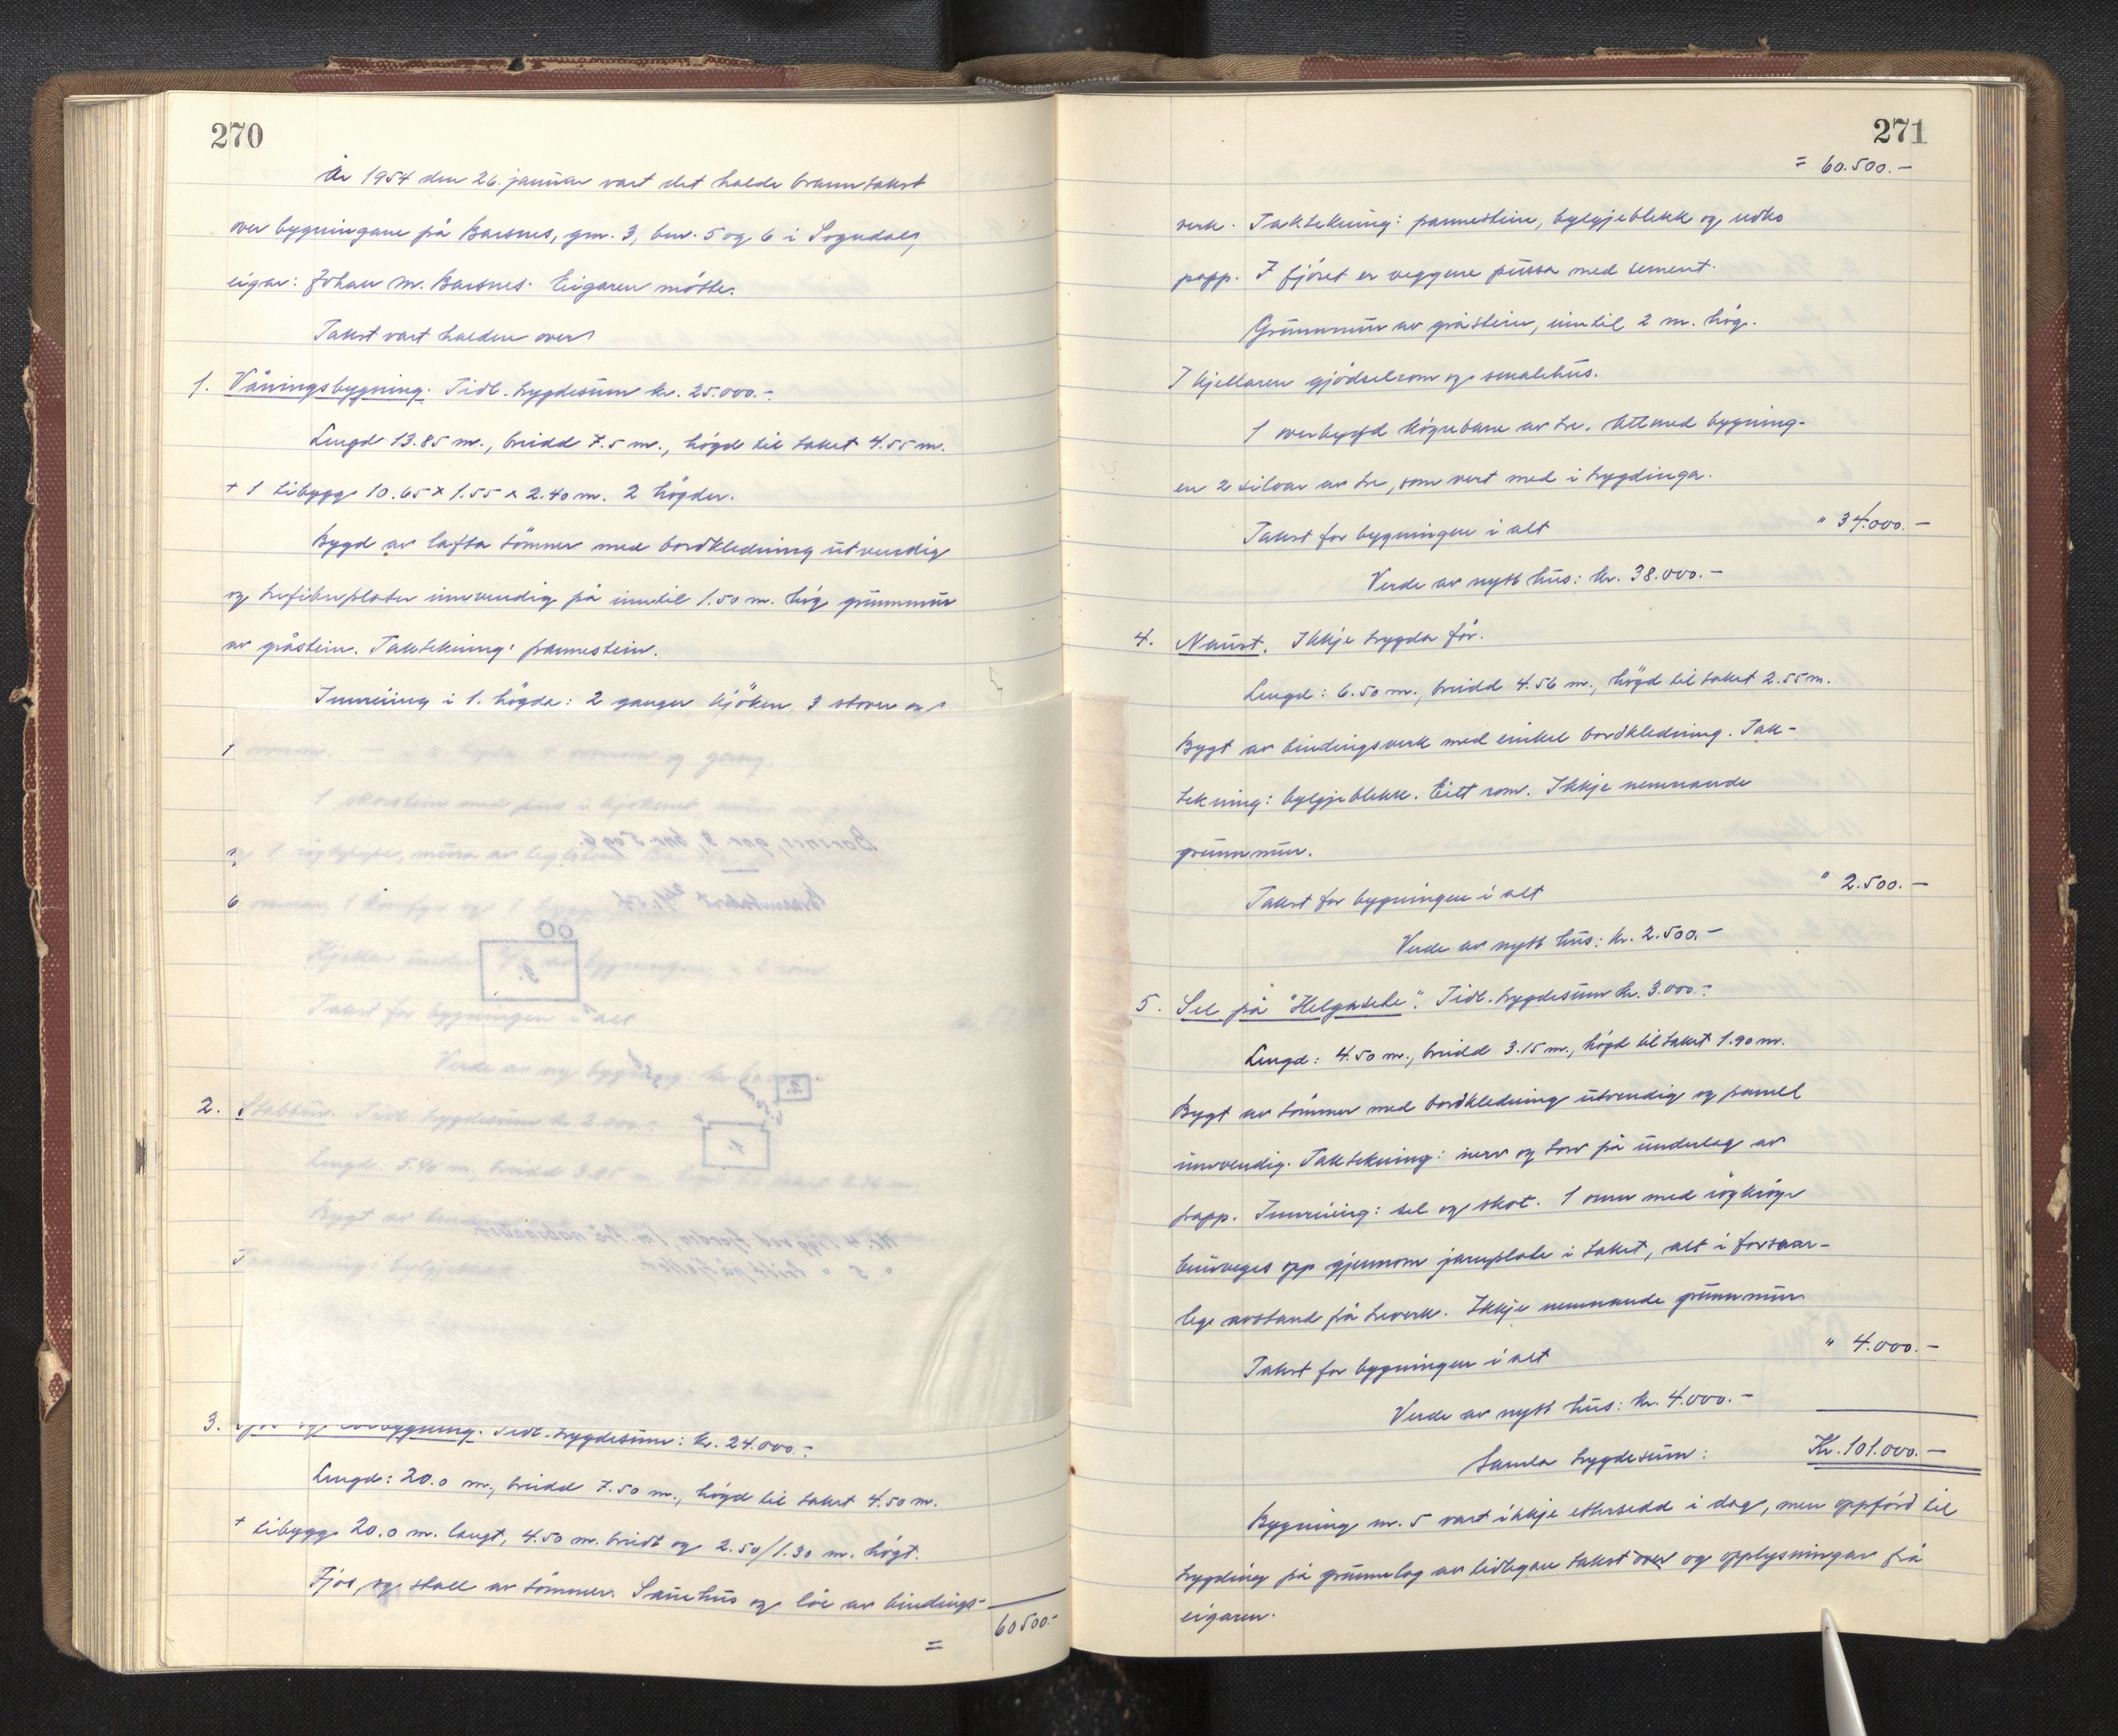 270
År 1954 den 26. januar vart det halde branntakst
over bygningane på Barsnes, gnr. 3, bnr. 5 og 6 i Sogndal,
eigar: Johan M. Barsnes. Eigaren møtte.
Takst vart halden over
1. Våningsbygning. Tidl. trygdesum kr. 25.000.-
Lengd 13.85 m., breidd 7.5 m., høgd til taket 4.55 m.
+ 1 tilbygg 10.65 x 1.55 x 2.40 m. 2 høgder.
Bygd av lafta tømmer med bordkledning utvendig
og trefiberplater innvendig på inntil 1.50 m. høg grunnmur
av gråstein. Taktekning: pannestein.
Innreiing i 1. høgda: 2 ganger kjøken, 3 stover og
1 skorstein med
Barsnes, gnr. 3, bnr. 5 og 6.
Branntakst 26/1.54
3.
Kjellar under
Takst for bygningen i alt
Verde av ny bygning: kr.
2.
2. Stabbur. Tidl. trygdesum kr. 2.000.-
1.
Lengd: 5.40 m., breidd 3.05 m.
Bygt av
Nr. 4 ligg ved fjorden,
" 5 "
3. Tidl. trygdesum: kr. 24.000.-
Lengd: 20.0 m., breidd 7.50 m., høgd til taket 4.50 m.
+ tilbygg 20.0 m. langt, 4.50 m. breidt og 2.50/1.30 m. høgt.
Fjøs, og stall av tømmer. Sauehus og løe av bindings-
= 60500.-
271
= 60.500.-
verk. Taktekning: pannestein, bylgjeblekk og
papp. I fjøset er veggene pussa med sement.
Grunnmur av gråstein, inntil 2 m. høg.
I kjellaren gjødselrom og smalehus.
1 overbygd køyrebane av tre. Attmed bygning-
en 2 siloar av tre, som vert med i trygdinga.
Takst for bygningen i alt " 34.000.-
Verde av nytt hus: kr. 38.000.-
4. Naust. Ikkje trygda før.
Lengd: 6.50 m., breidd 4.56 m., høgd til taket 2.55 m.
Bygt av bindingsverk med einkel bordkledning. Tak-
tekning: bylgjeblekk. Eitt rom. Ikkje nemnande
grunnmur.
Takst for bygningen i alt " 2.500.-
Verde av nytt hus: kr. 2.500.-
5. Sel på "Helgasete". Tidl. trygdesum kr. 3.000.-
Lengd: 4.50 m., breidd 3.15 m., høgd til taket 1.90 m.
Bygt av tømmer med bordkledning utvendig og panel
innvendig. Taktekning: nevr og torv på underlag av
papp. Innreiing: sel og skot. 1 omn med røykrøyr
beinveges opp gjennom jarnplate i taket, alt i forsvar-
leg avstand frå treverk. Ikkje nemnande grunnmur
Takst for bygningen i alt " 4.000.-
Verde av nytt hus: kr. 4.000.-
Samla trygdesum: Kr. 101.000.-
Bygning nr. 5 vart ikkje ettersedd i dag, men oppførd til
trygding på grunnlag av tidlegare takst over og opplysningar frå
eigaren.